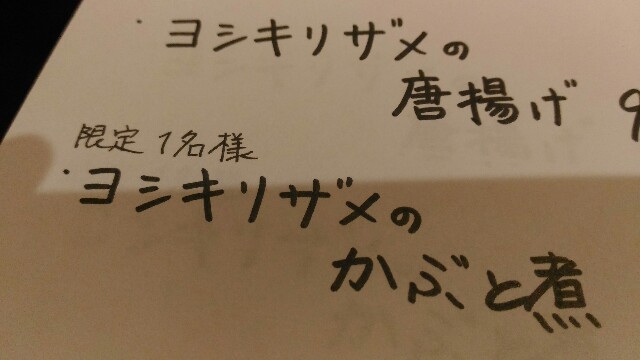 ・ヨシキリザメの
唐揚げ 9
限定1名様
・ヨシキリザメの
かぶと煮